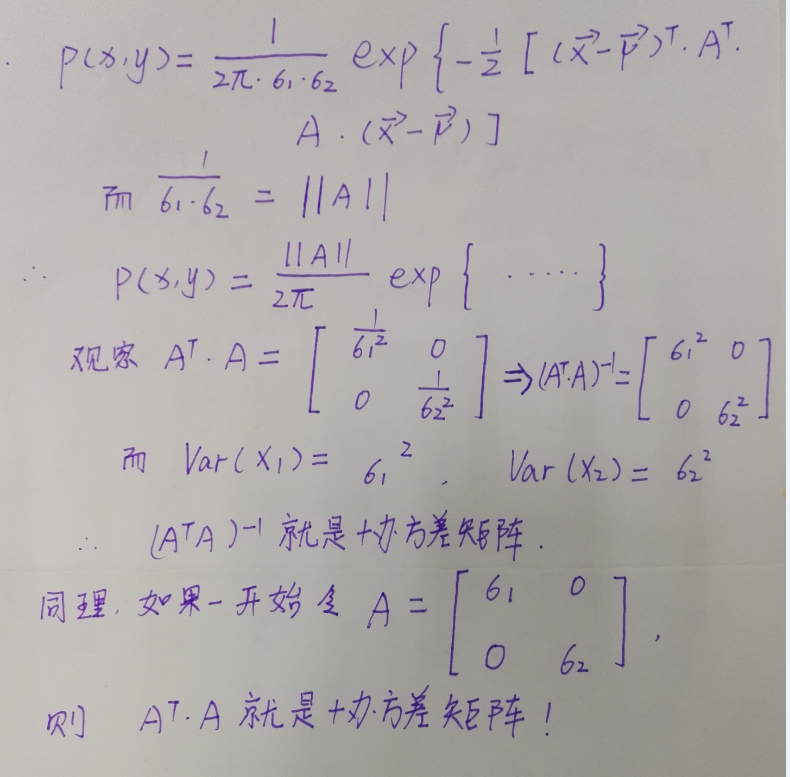 p(x,y)=\frac{1}{2π·σ₁·σ₂} exp{-\frac{1}{2}[(\vec{x}-\vec{μ})^T·A^T·
A·(\vec{x}-\vec{μ})]
而 \frac{1}{σ₁·σ₂} = ||A||
∴ p(x,y)=\frac{||A||}{2π} exp{ ····· }
观察 A^T·A = [\frac{1}{σ₁²} 0; 0 \frac{1}{σ₂²}] ⇒ (A^T·A)^{-1} = [σ₁² 0; 0 σ₂²]
而 Var(X₁)= σ₁². Var(X₂)= σ₂²
∴ (A^TA)^{-1} 就是协方差矩阵.
同理,如果一开始令 A = [σ₁ 0; 0 σ₂],
则 A^T·A 就是协方差矩阵!